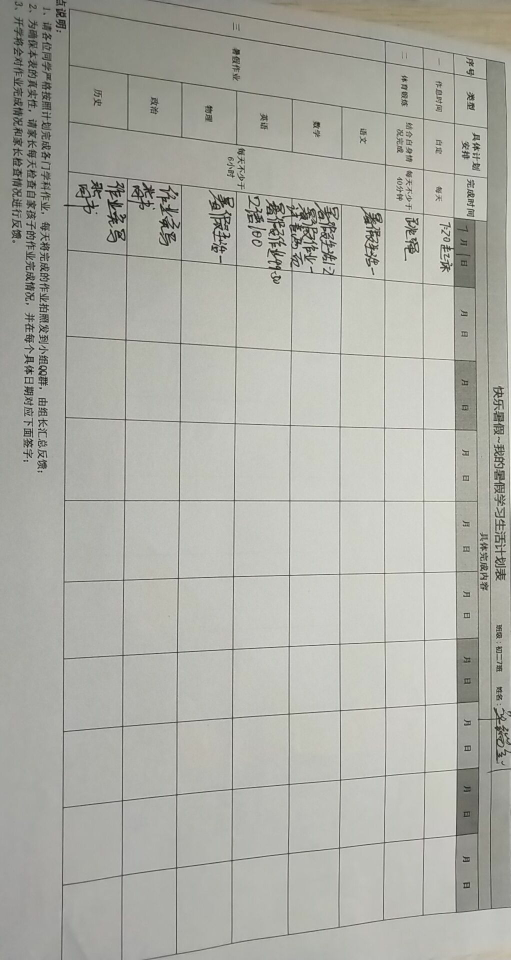 快乐暑假~我的暑假学习生活计划表
班级：初二7班 姓名：
序号 类型 具体计划安排 完成时间 具体完成内容
7月1日 月 日 月 日 月 日 月 日 月 日 月 日 月 日 月 日 月 日
一 作息时间 自定 每天 7:20起床
二 体育锻炼 结合自身情况完成 每天不少于40分钟 跳绳
三 暑假作业 每天不少于6小时
语文 暑假生活一
数学 暑假生活1.2
暑假作业一
英语 暑假作业49.50
口语100
物理 暑假生活一
政治 作业完写
背书
历史 作业完写
背书
点说明：
1、请各位同学严格按照计划完成各门学科作业，每天将完成的作业拍照发到小组QQ群，由组长汇总反馈；
2、为确保本表的真实性，请家长每天检查自家孩子的作业完成情况，并在每个具体日期对应下面签字；
3、开学将会对作业完成情况和家长检查情况进行反馈。